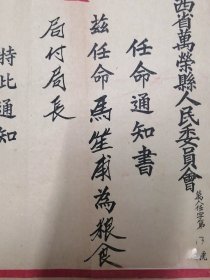 西省萬榮縣人民委員會
萬人任字第 号
任命通知書
兹任命馬笙甫為粮食
局付局長
特此通知